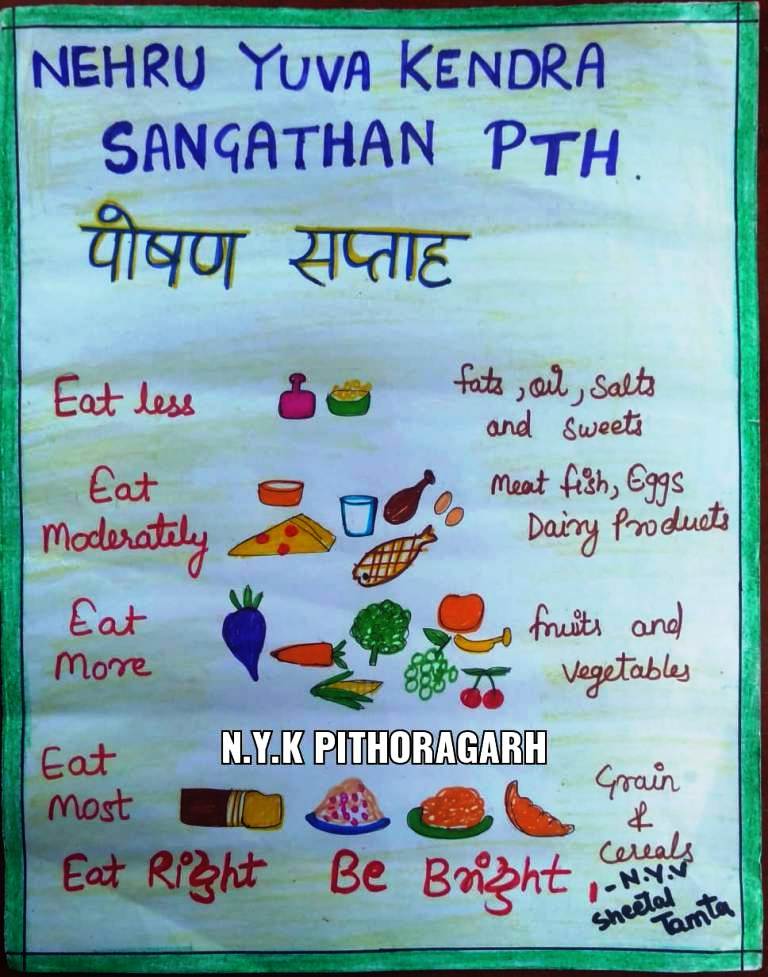 NEHRU YUVA KENDRA
SANGATHAN PTH.
पोषण सप्ताह
Eat less
fats, oil, salts
and sweets
Eat
Moderately
Meat fish, Eggs
Dairy Products
Eat
More
fruits and
vegetables
N.Y.K PITHORAGARH
Eat
Most
Grain
&
Cereals
Eat Right Be Bright !
- N.Y.V
Sheetal
Tamta